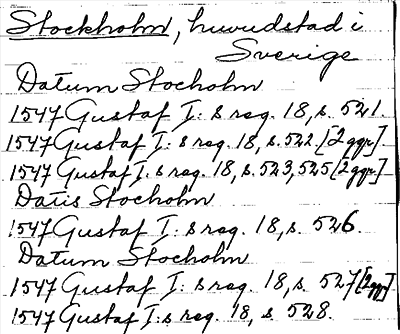 Stockholm, huvudstad i
Sverige
Datum Stocholm
1547 Gustaf I: s reg. 18, s. 521.
1547 Gustaf I: s reg. 18, s. 522 [2 ggr].
1547 Gustaf I: s reg. 18, s. 523, 525 [2 ggr]
Datis Stocholm
1547 Gustaf I: s reg. 18, s. 526.
Datum Stocholm
1547 Gustaf I: s reg. 18, s. 527 [2 ggr]
1547 Gustaf I: s reg. 18, s. 528.